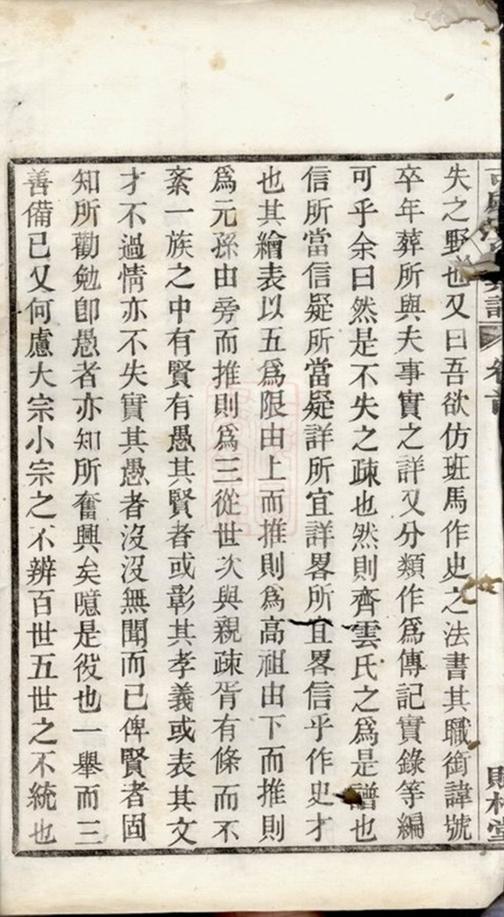 失之野也又曰吾欲仿班馬作史之法書其職銜諱號
卒年葬所與夫事實之詳又分類作為傳記實錄等編
可乎余曰然是不失之疎也然則齊雲氏之為是譜也
信所當信疑所當疑詳所宜詳畧所宜畧信乎作史才
也其繪表以五為限由上而推則為高祖由下而推則
為元孫由旁而推則為三從世次與親疎胥有條而不
紊一族之中有賢有愚其賢者或彰其孝義或表其文
才不過情亦不失實其愚者沒沒無聞而已俾賢者固
知所勸勉卽愚者亦知所奮興矣噫是役也一舉而三
善備已又何慮大宗小宗之不辨百世五世之不統也